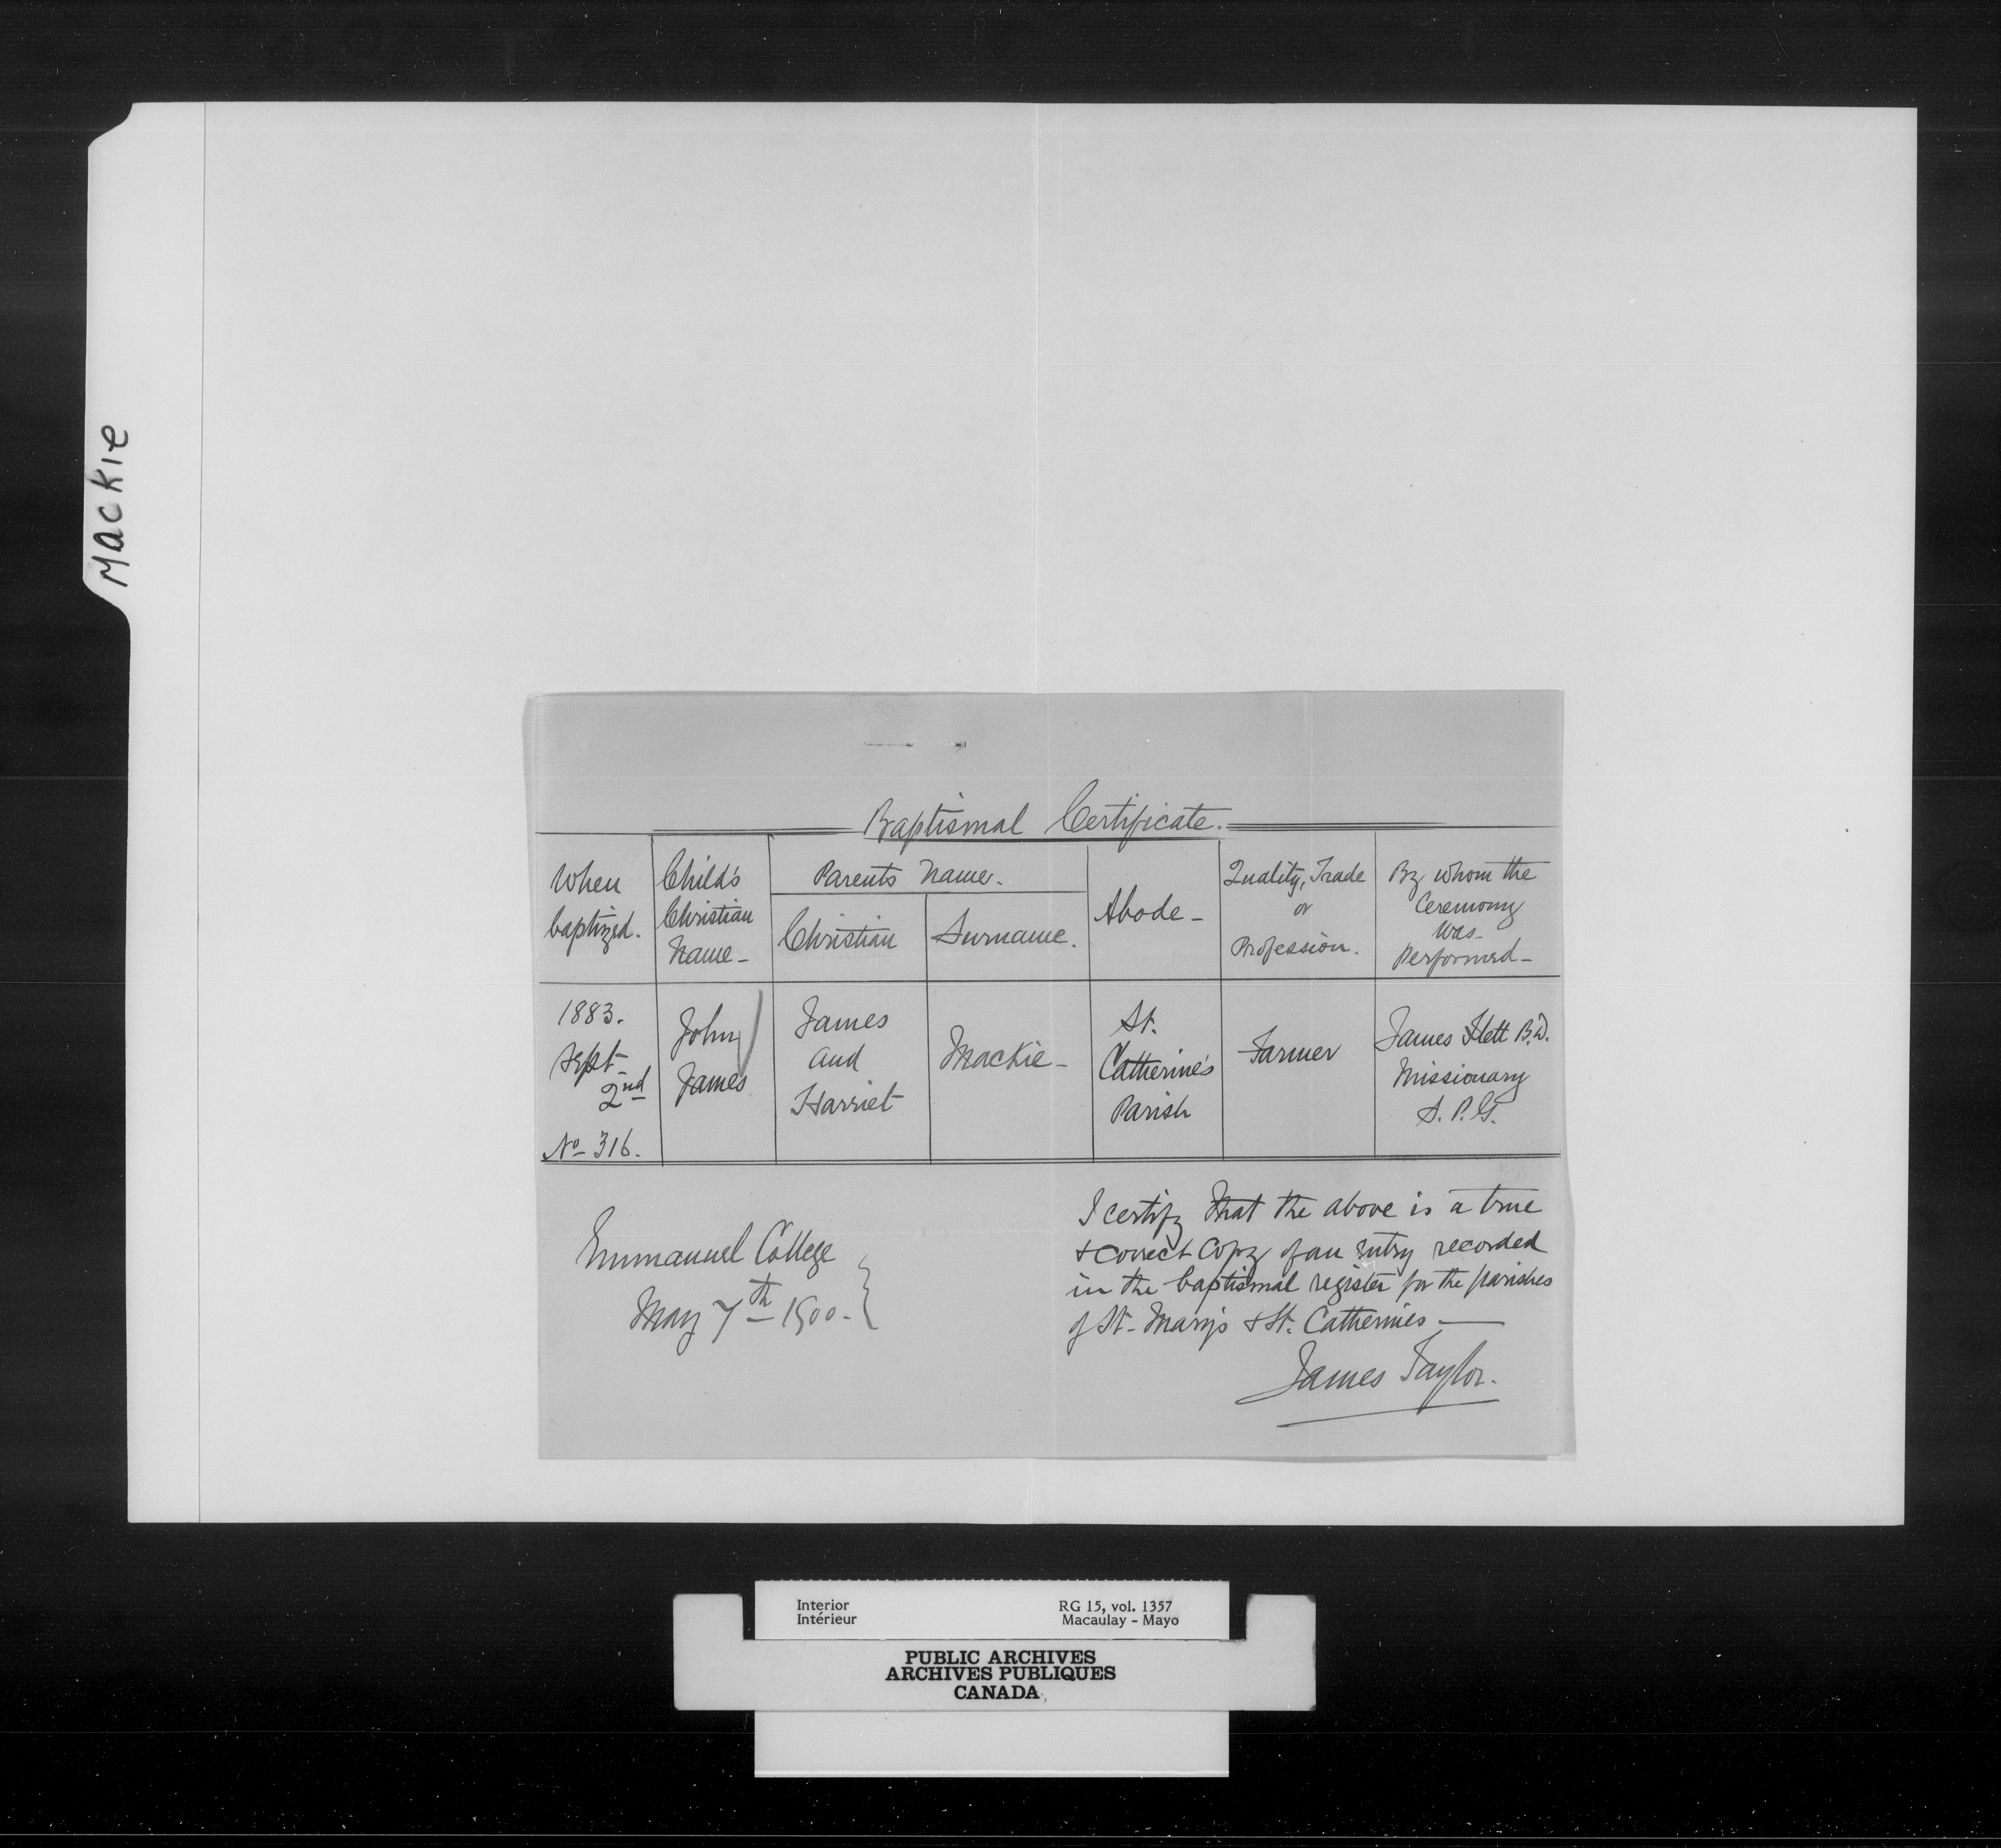 Mackie
Baptismal Certificate.
When
baptized.
Child's
Christian
Name -
Parents Name.
Christian
Surname.
Abode -
Quality, Trade
or
Profession.
By whom the
Ceremony
was
Performed -
1883.
Sept
2nd
No 316.
John
James
James
and
Harriet
Mackie -
St.
Catherine's
Parish
Farmer
James Flett B.D.
Missionary
S. P. G.
Emmanuel College
May 7th 1900.
I certify that the above is a true
& correct copy of an entry recorded
in the baptismal register for the parishes
of St. Mary's & St. Catherines
James Taylor.
Interior
Intérieur
RG 15, vol. 1357
Macaulay - Mayo
PUBLIC ARCHIVES
ARCHIVES PUBLIQUES
CANADA